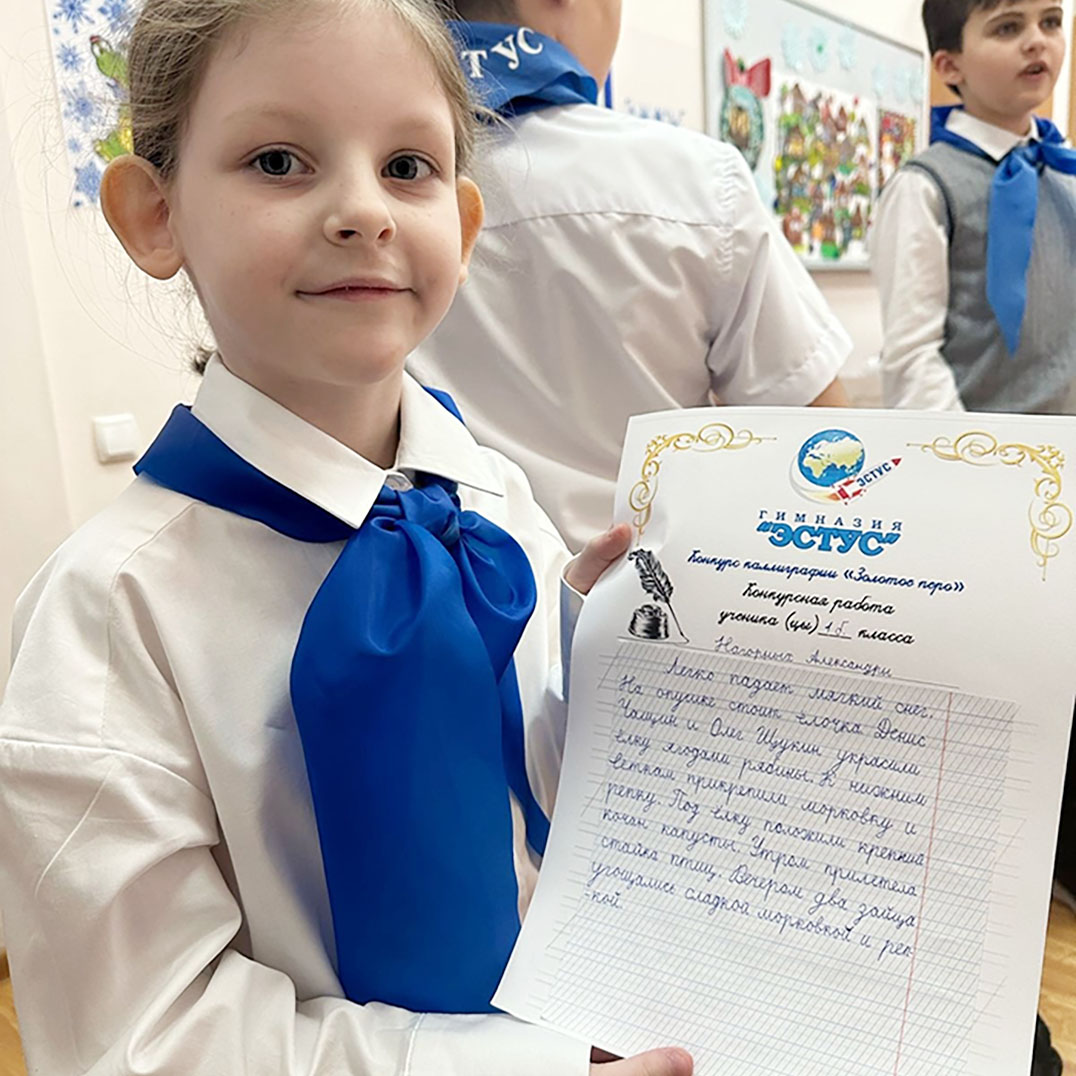 ТУС
ЭСТУС
ГИМНАЗИЯ
"ЭСТУС"
Конкурс каллиграфии «Золотое перо»
Конкурсная работа
ученика (цы) 1Б класса
Нагорных Александры
Легко падает мягкий снег.
На опушке стоит ёлочка Денис
Чащин и Олег Щукин украсили
ёлку ягодами рябины. К нижним
веткам прикрепили морковку и
репку. Под ёлку положили крепкий
кочан капусты. Утром прилетела
стайка птиц. Вечером два зайца
угощались сладкой морковкой и реп-
-кой.